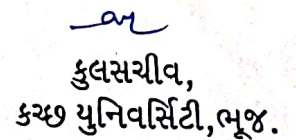 કુલસચીવ,
કચ્છ યુનિવર્સિટી,ભૂજ.